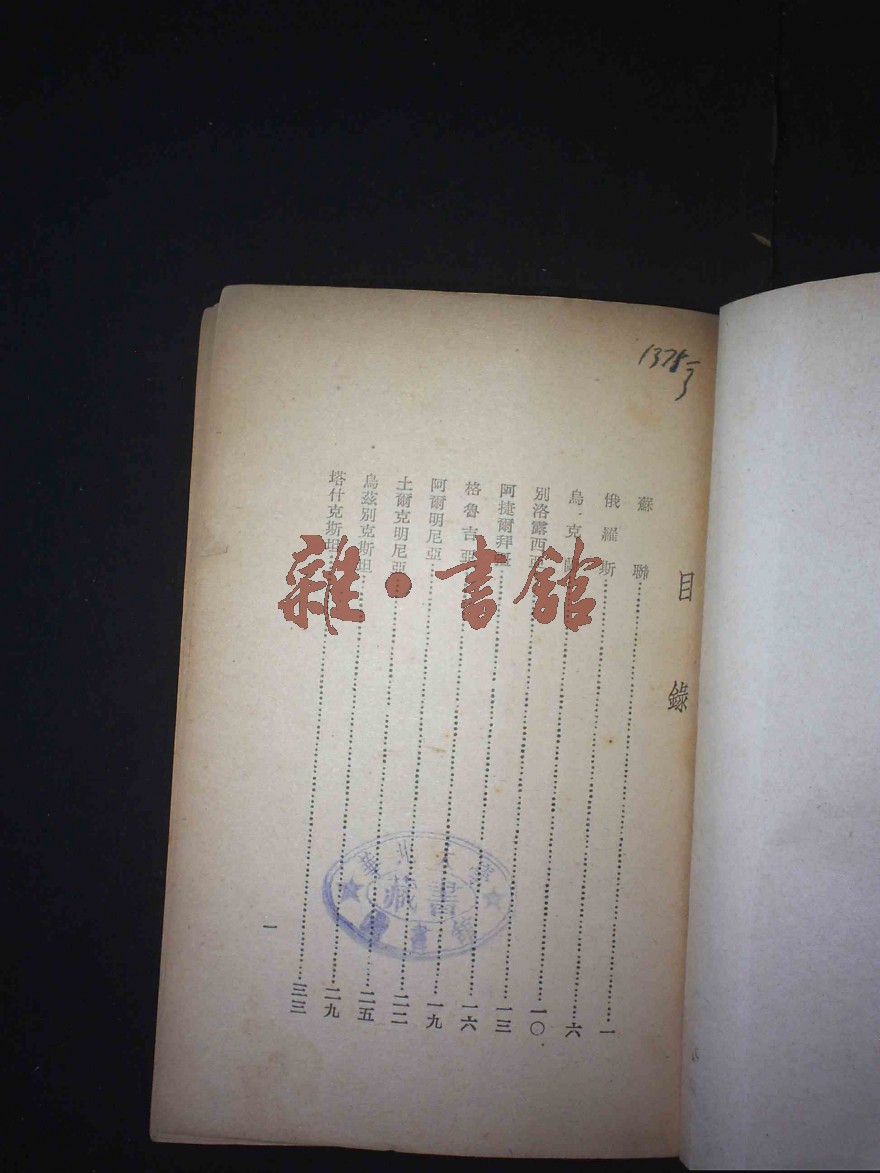 1375/3
目錄
蘇聯……一
俄羅斯……六
烏克蘭……一〇
別洛露西亞……一三
阿捷爾拜疆……一六
格魯吉亞……一九
阿爾明尼亞……二二
土爾克明尼亞……二五
烏茲別克斯坦……二九
塔什克斯坦……三三
一
華北大學
藏書
圖書館
雜·書館